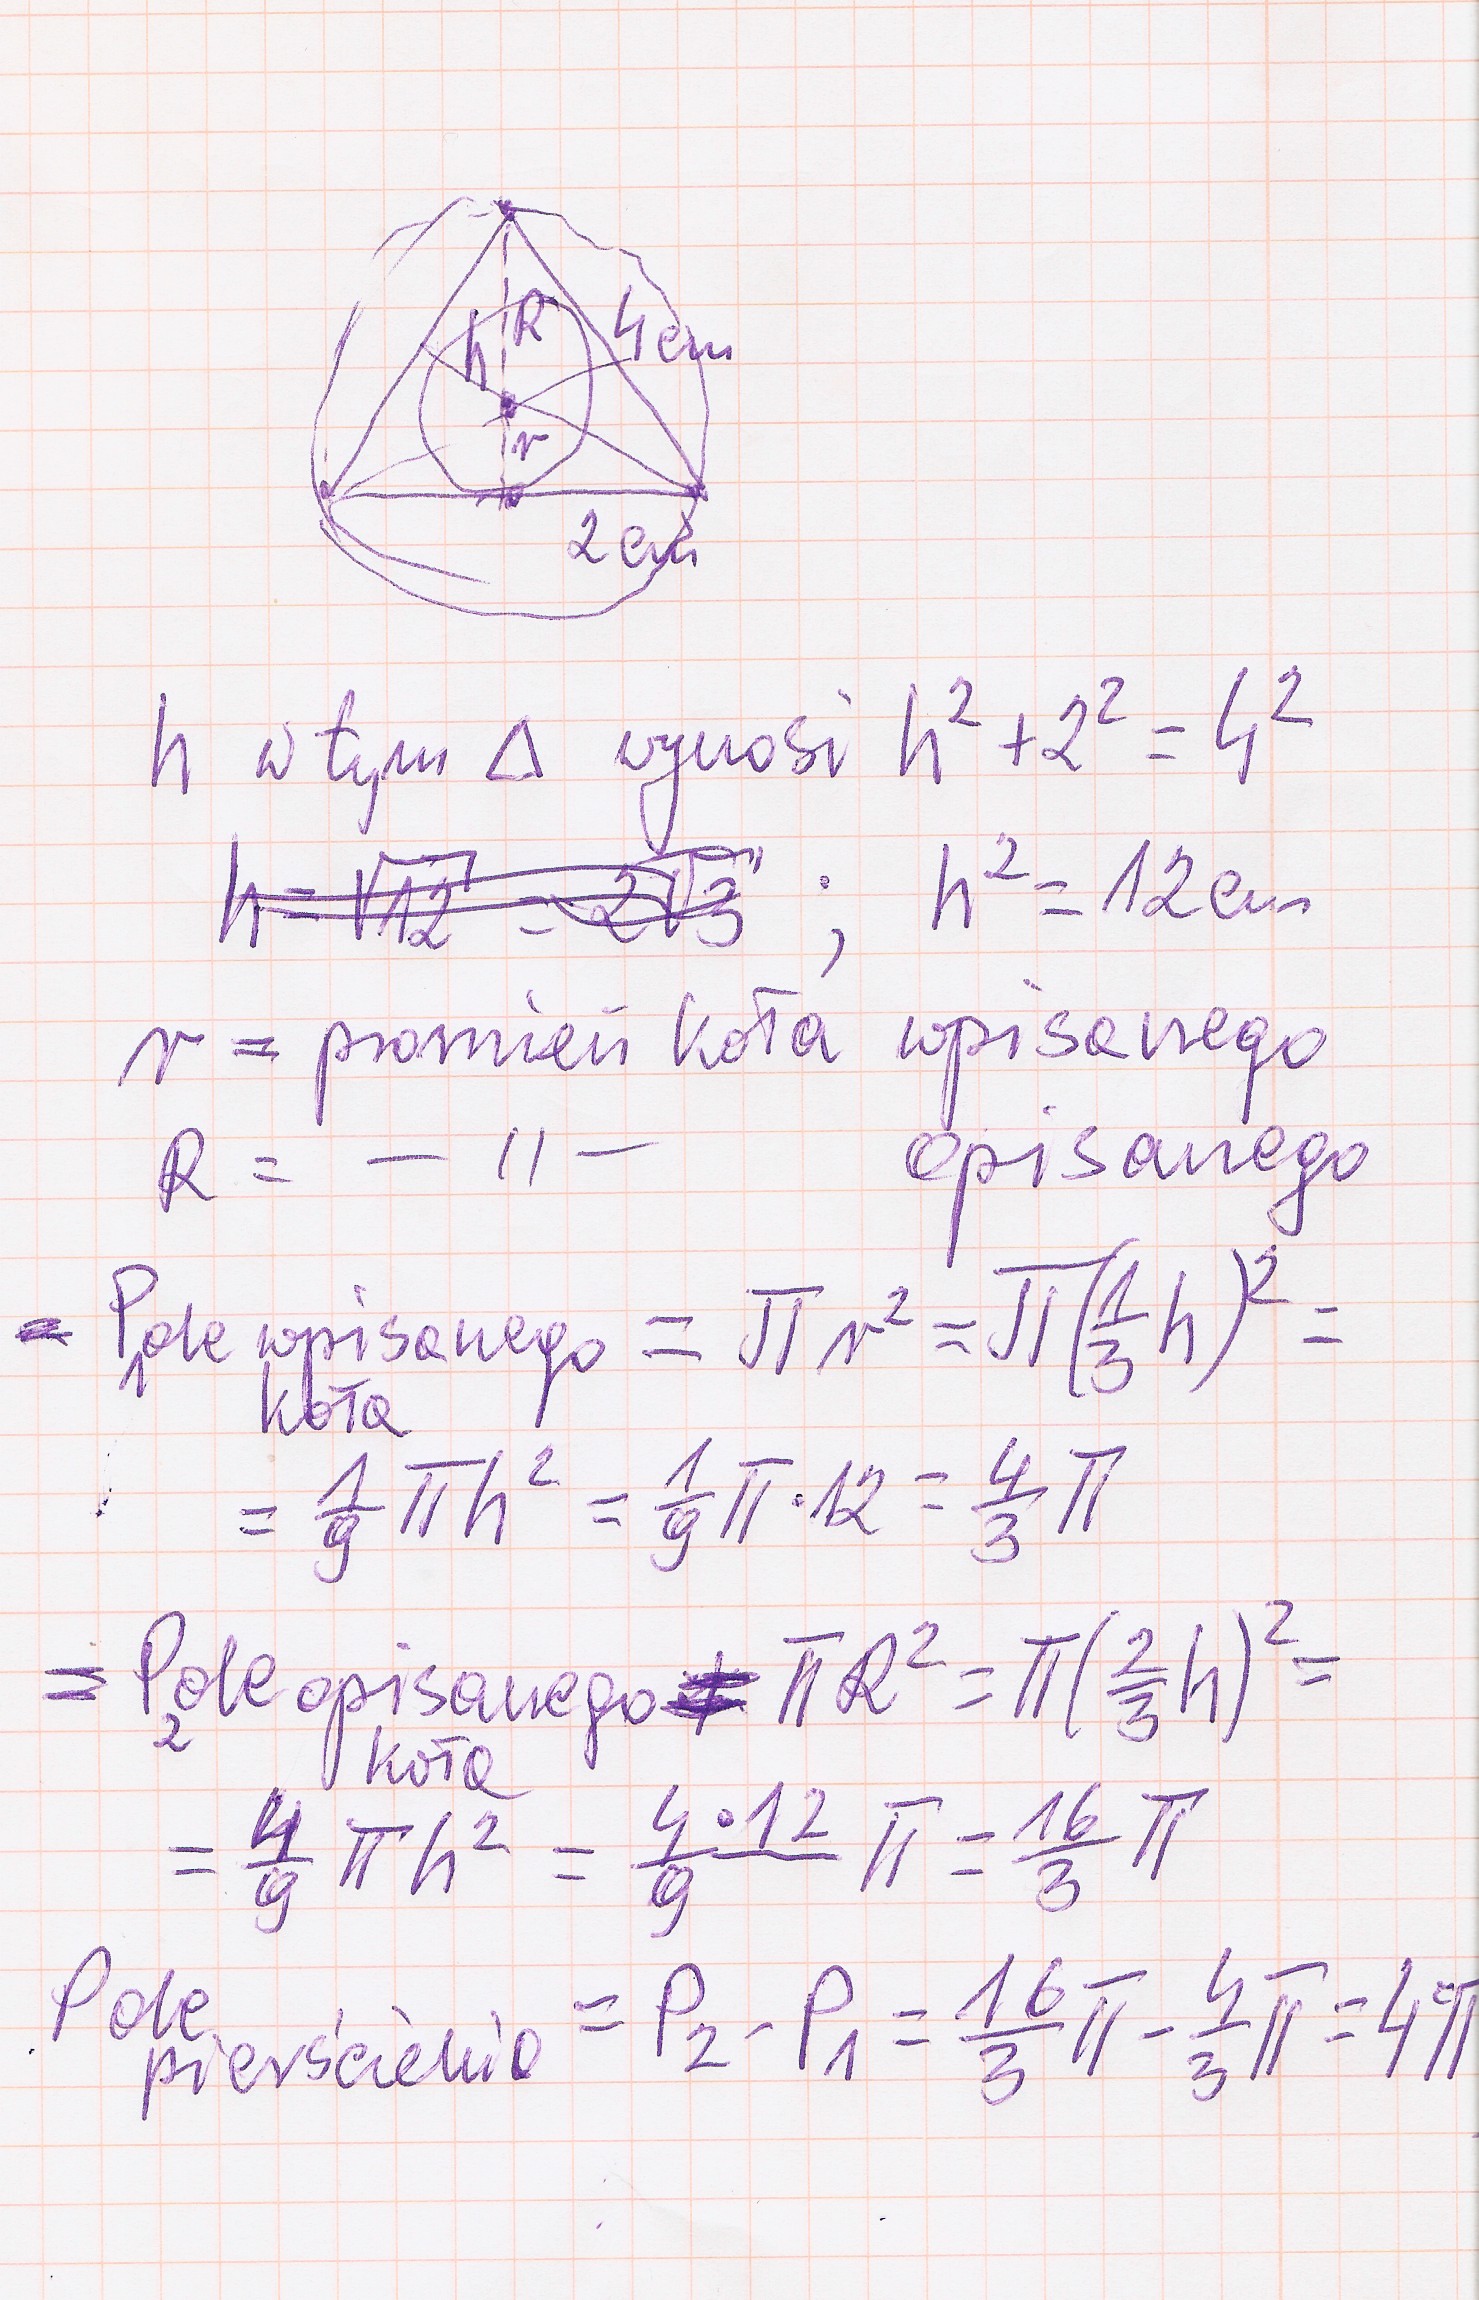 h
R
4cm
r
2cm
h w tym Δ wynosi h² + 2² = 4²
h = √12 = 2√3 ; h² = 12cm
r = promień koła wpisanego
R = — 11 — opisanego
= P₁ole wpisanego = π r² = π(1/3 h)² =
koła
= 1/9 π h² = 1/9 π · 12 = 4/3 π
= P₂ole opisanego = πR² = π(2/3 h)² =
koła
= 4/9 π h² = 4·12/9 π = 16/3 π
Pole pierścienia = P₂ - P₁ = 16/3 π - 4/3 π = 4π